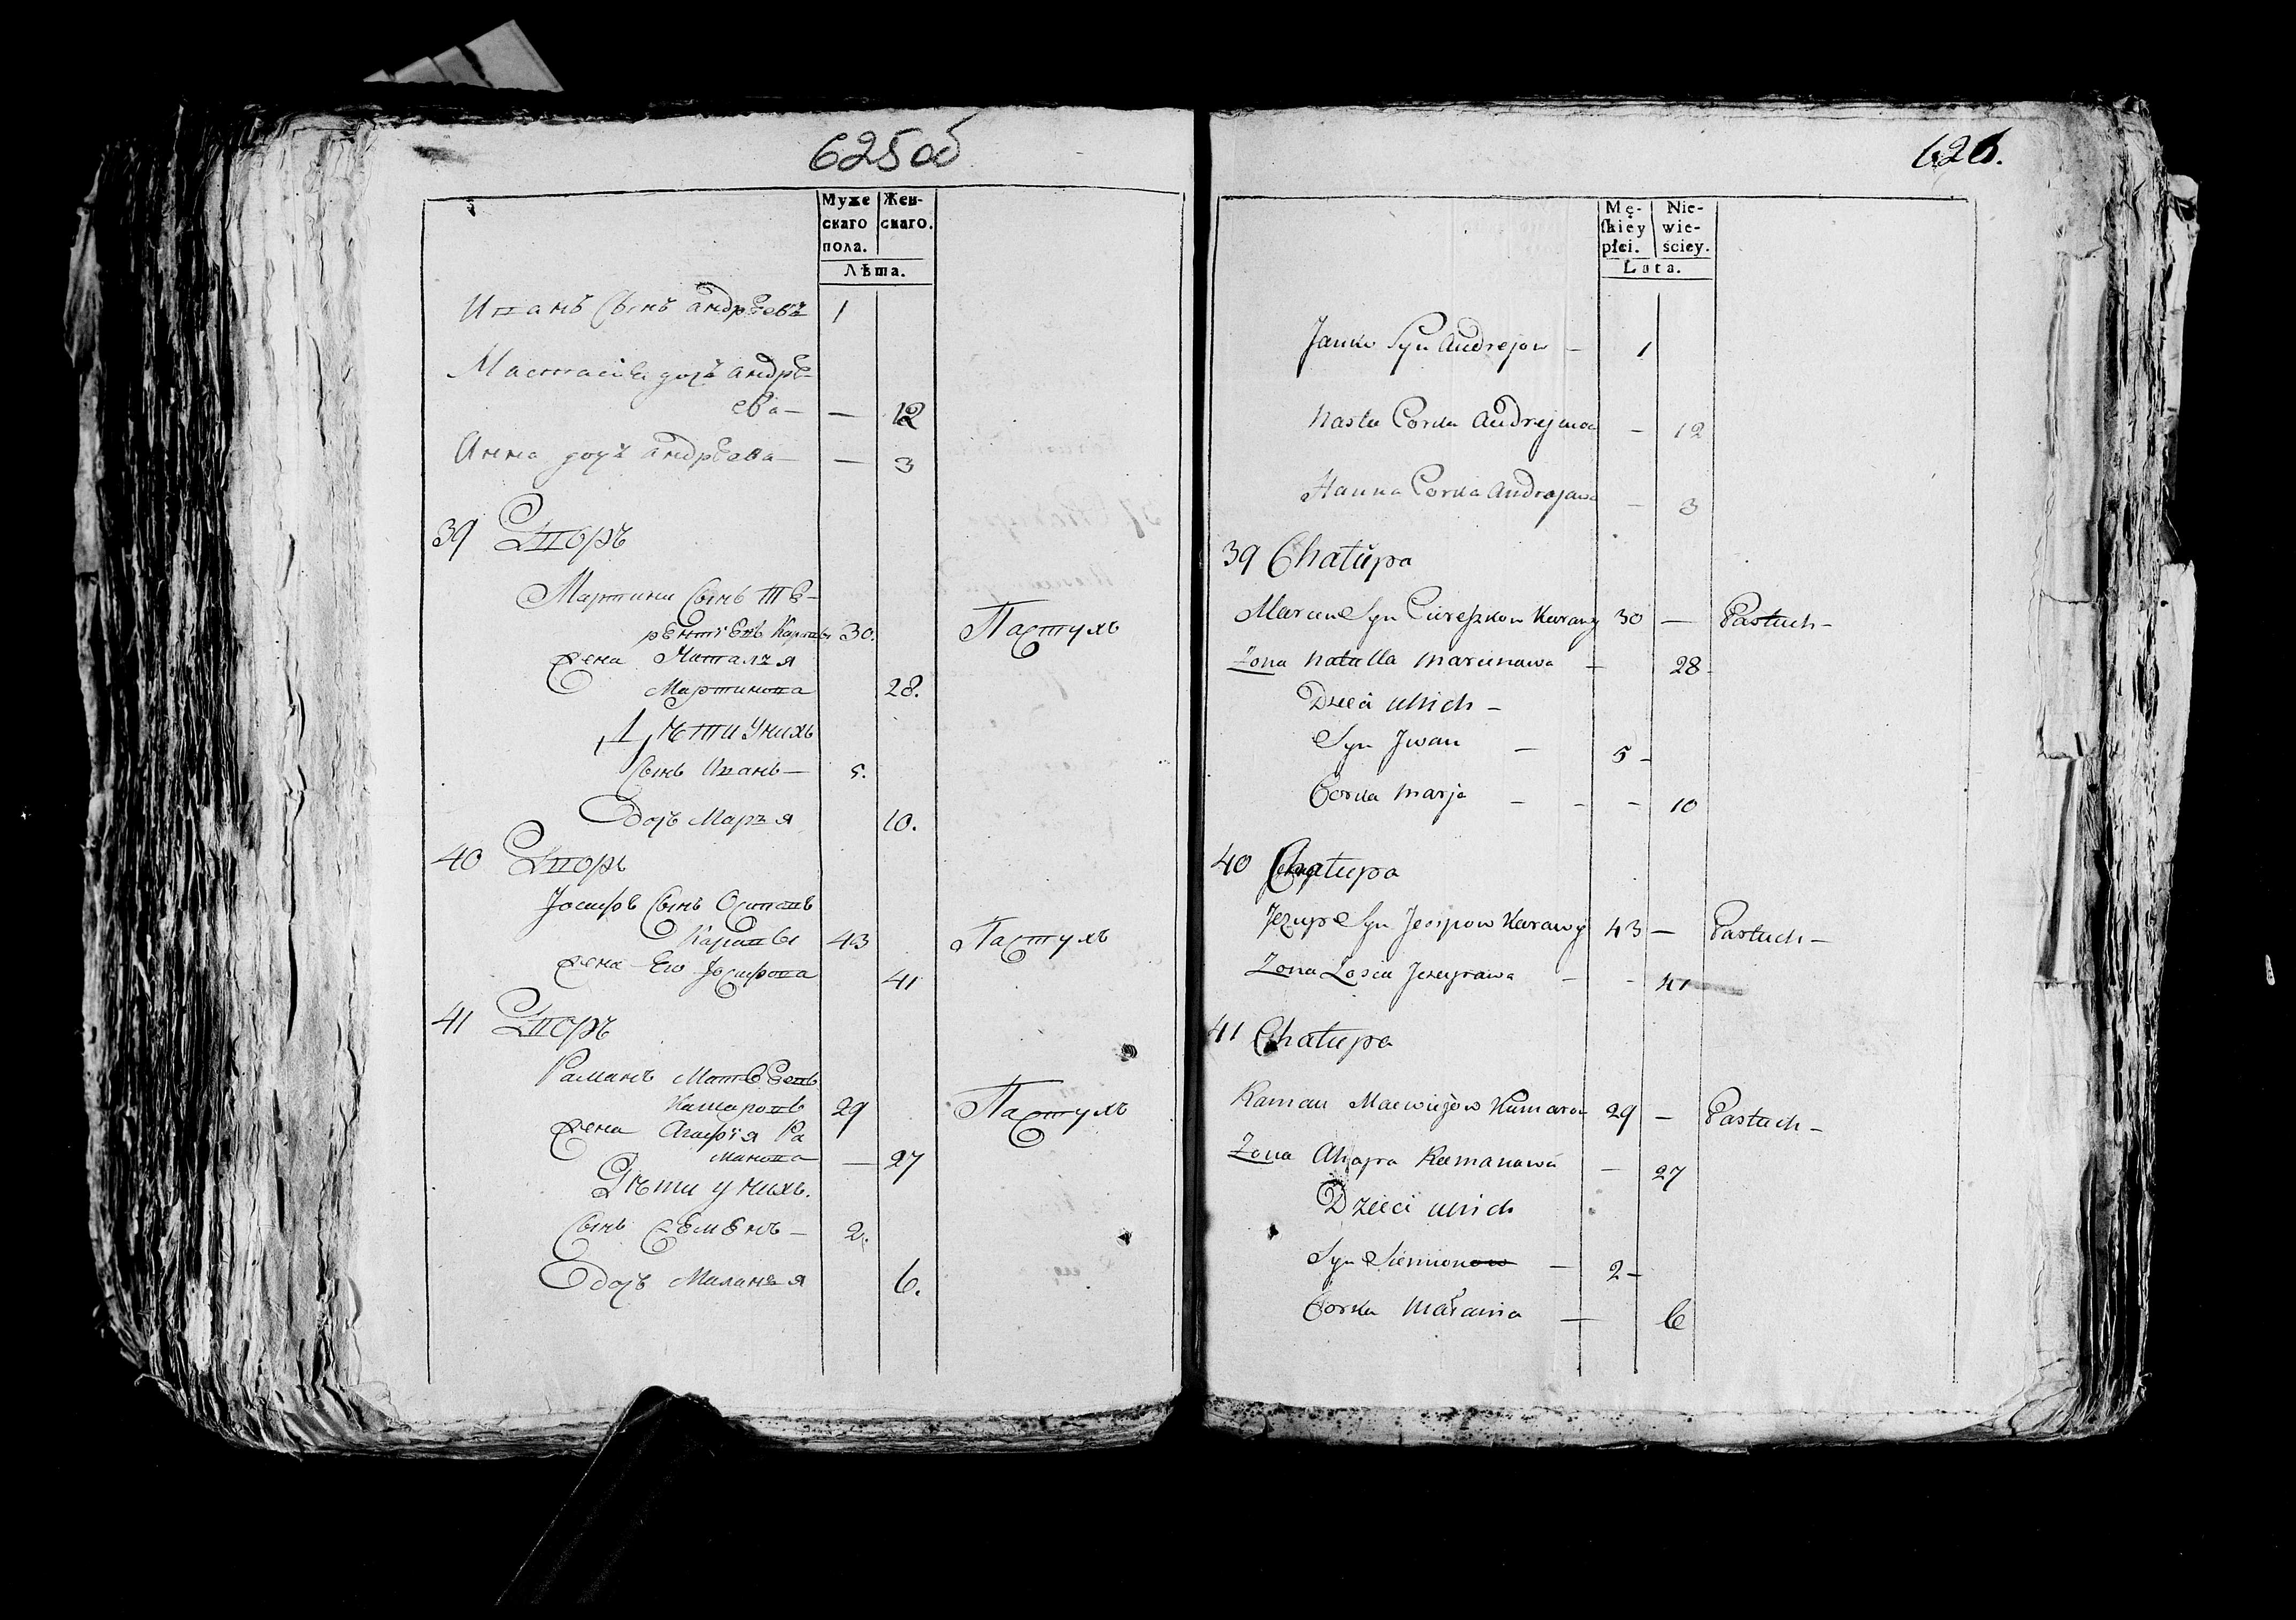 625об
Муже Жен-
скаго скаго.
пола.
Лѣта.
Иванъ Сынъ андрѣевъ 1
Настасія дочь андрѣ-
ева — — 12
Анна дочь андрѣева — — 3
39 Дворъ
Мартинъ Сынъ Те-
рентіевъ 30. Пастухъ
жена Наталья
Мартинова 28.
Дѣти у нихъ
Сынъ Иванъ — 5.
дочь Марья 10.
40 Дворъ
Іосифъ Сынъ Осиповъ
43 Пастухъ
жена Его Іосифова 41
41 Дворъ
Раманъ Матвѣевъ
Камаровъ 29 Пастухъ
жена Агафія Ра
манова — 27
Дѣти у нихъ.
Сынъ Семенъ — 2.
дочь Маланья 6.
626.
Mę- Nie-
skiey wie-
płci. ściey.
Lata.
Janko Syn Andrejow — 1
Nasta Corka Andrejewa — 12
Hanna Corka Andrejawa — 3
39 Chałupa
Marcin Syn Karawy 30 — Pastuch —
Zona Natalla Marcinawa — 28
Dzieci unich —
Syn Jwan — 5 —
Corka Marja — — — 10
40 Chałupa
Jezup Syn Jesipow Karawy 43 — Pastuch —
Zona Zosia Jezupawa — — 41
41 Chałupa
Raman Maćwiejow Kamaro 29 — Pastuch —
Zona Ahapa Ramanawa — 27
Dzieci unich
Syn Siemionow — 2 —
Corka Małania — 6